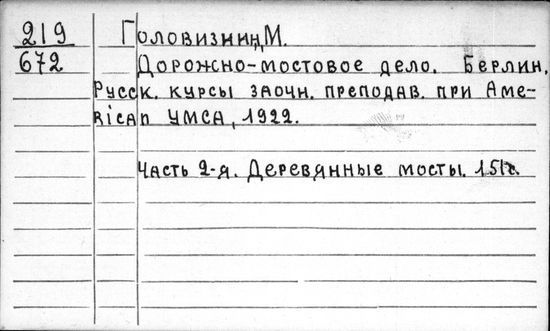 219 Головизнин, М.
672 Дорожно-мостовое дело. Берлин,
Русск. курсы заочн. преподав. при Ame-
rican YMCA, 1922.
Часть 2-я. Деревянные мосты. 151с.